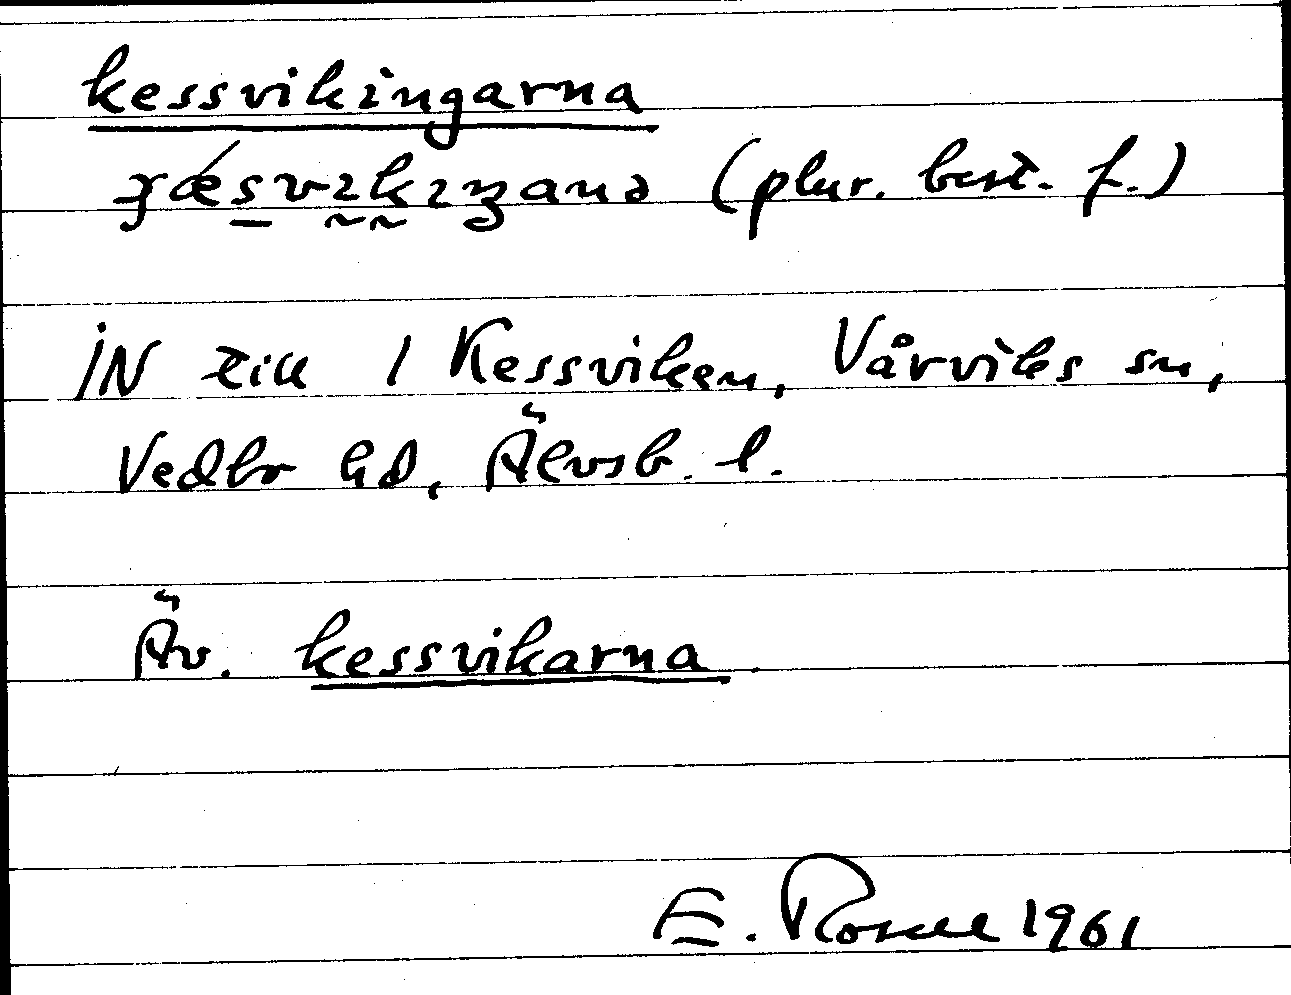 kessvikingarna
(plur. best. f.)
IN till 1 Kessviken, Vårviks sn,
Vedbo hd, Älvsb. l.
Äv. kessvikarna.
E. Rosell 1961